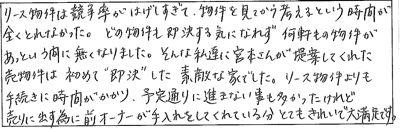 リース物件は競争率がはげしすぎて、物件を見てから考えるという時間が
全くとれなかった。どの物件も即決する気になれず何軒もの物件が
あっという間に無くなりました。そんな私達に宮本さんが提案してくれた
売物件は初めて"即決"した素敵な家でした。リース物件よりも
手続きに時間がかかり、予定通りに進まない事も多かったけれど
売りに出す為に前オーナーが手入れをしてくれている分とてもきれいで大満足です。